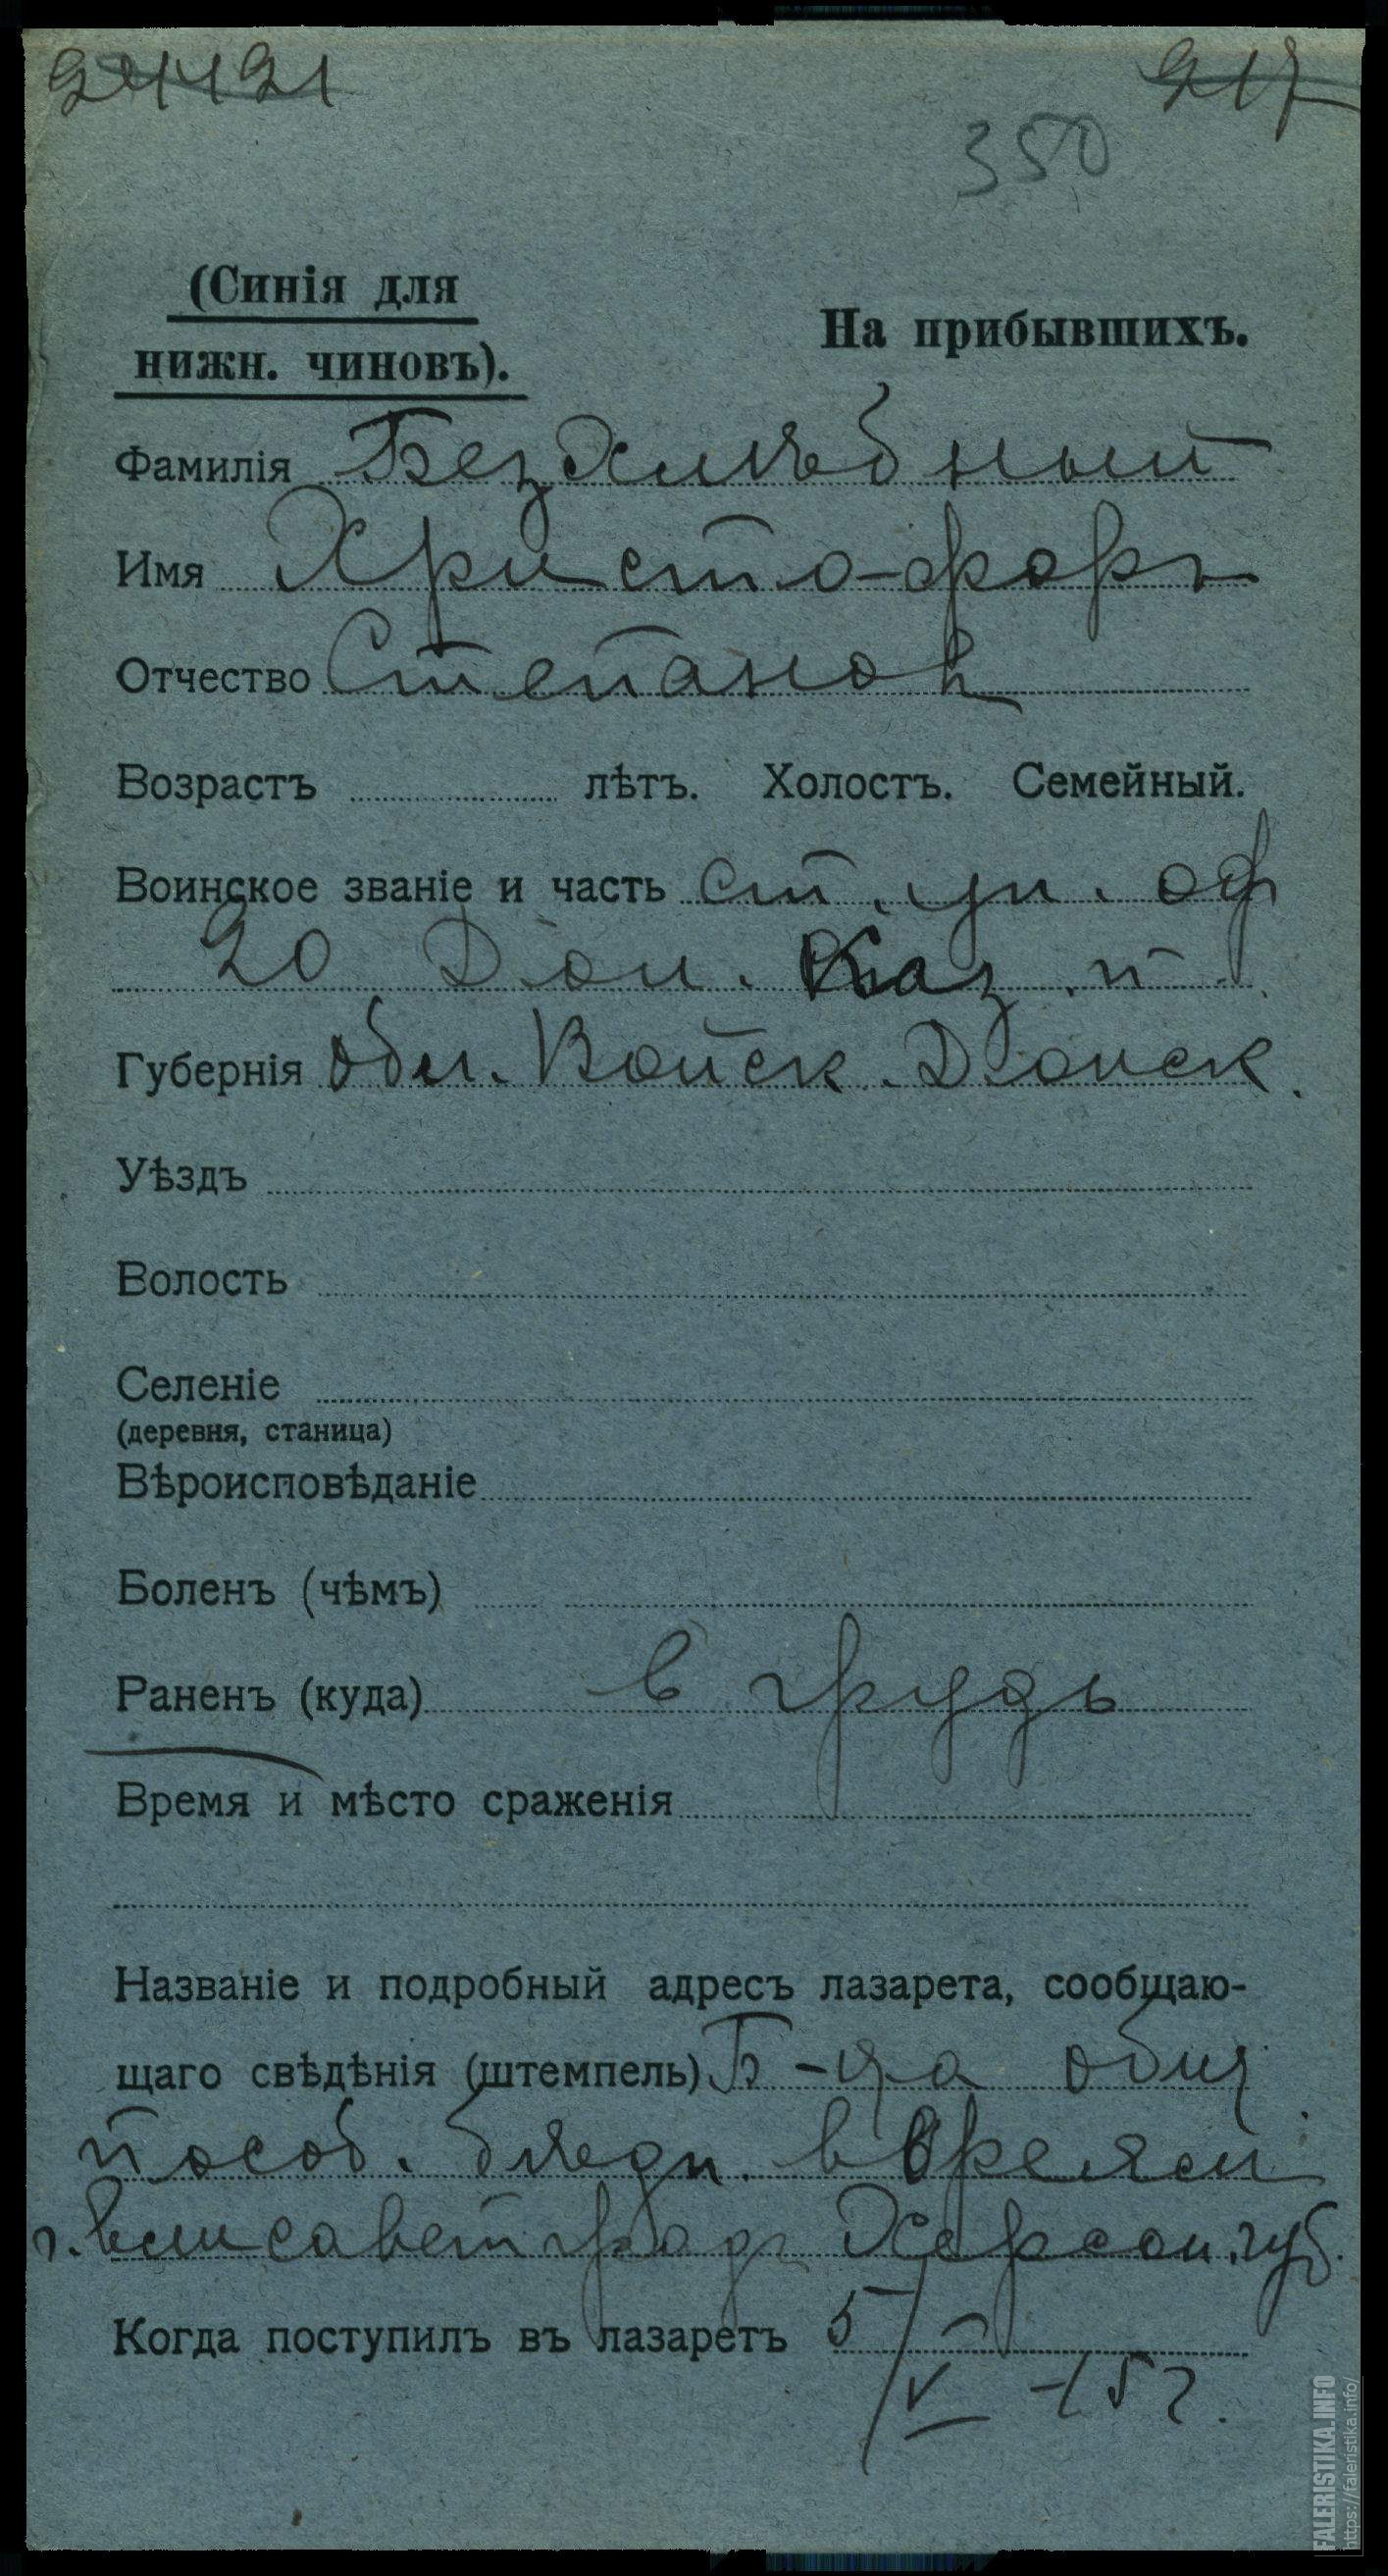 217
350
(Синія для
нижн. чиновъ).
На прибывшихъ.
Фамилія Безхлѣбный
Имя Христофоръ
Отчество Степанов
Возрастъ лѣтъ. Холостъ. Семейный.
Воинское званіе и часть ст. ун. оф
20 Дон. Каз. п.
Губернія обл. Войск. Донск.
Уѣздъ
Волость
Селеніе
(деревня, станица)
Вѣроисповѣданіе
Боленъ (чѣмъ)
Раненъ (куда) в грудь
Время и мѣсто сраженія
Названіе и подробный адресъ лазарета, сообщаю-
щаго свѣдѣнія (штемпель) Б-ца общ.
пособ. бѣдн. евреям
г. Елисаветград Херсон. губ.
Когда поступилъ въ лазаретъ 5/V -15 г.
FALERISTIKA.INFO
https://faleristika.info/